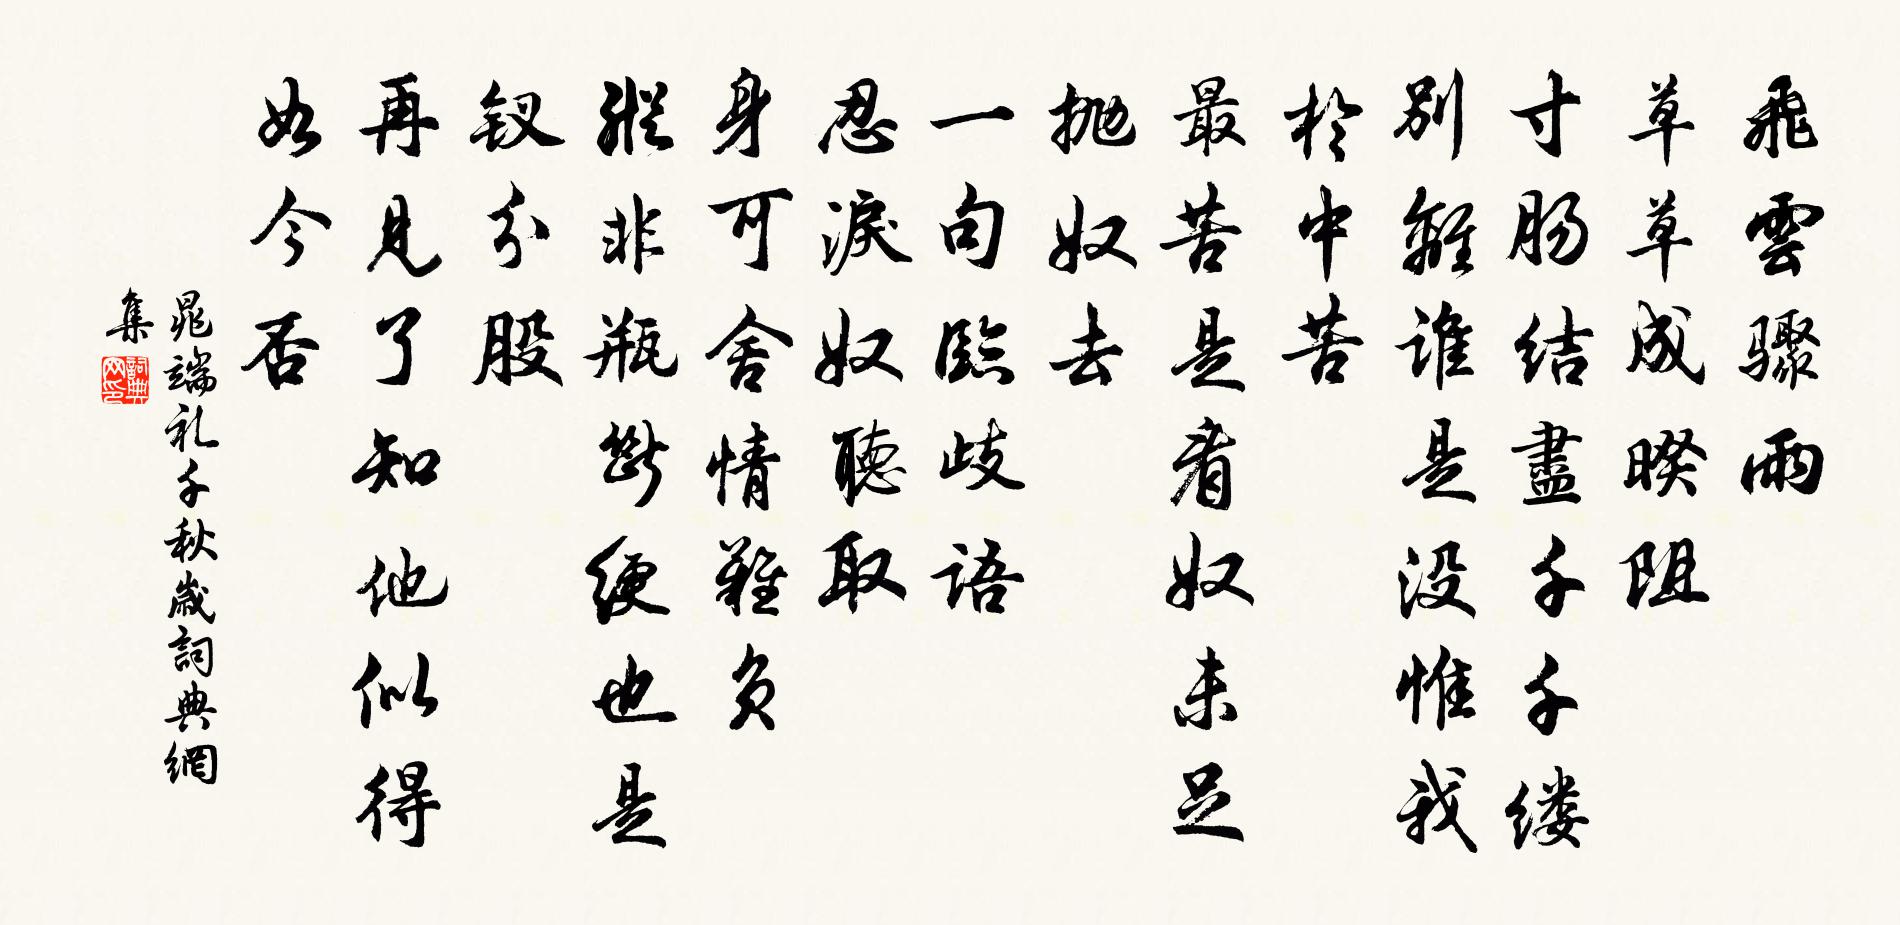 飛雲驟雨
草草成暌阻
寸肠结盡千千缕
別離誰是没惟我
於中苦
最苦是看奴未足
抛奴去
一句臨歧語
忍淚奴聽取
身可舍情難负
縱非瓶斷绠也是
钗分股
再見了知他似得
如今否
晁端礼千秋歲詞典網
集
詞典
网印